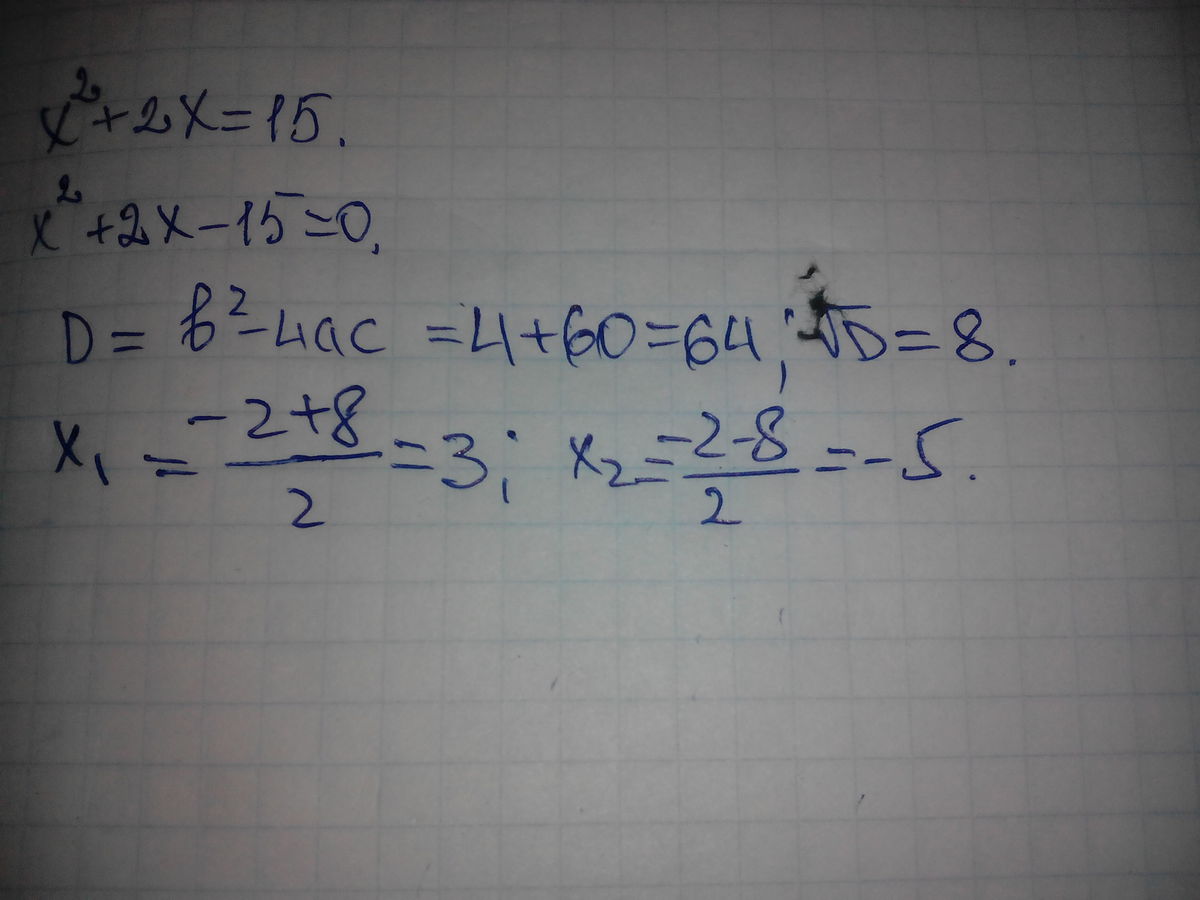 x²+2x=15.
x²+2x-15=0,
D = b²-4ac =4+60=64; √D=8.
x₁ = (-2+8)/2 =3; x₂= (-2-8)/2 =-5.